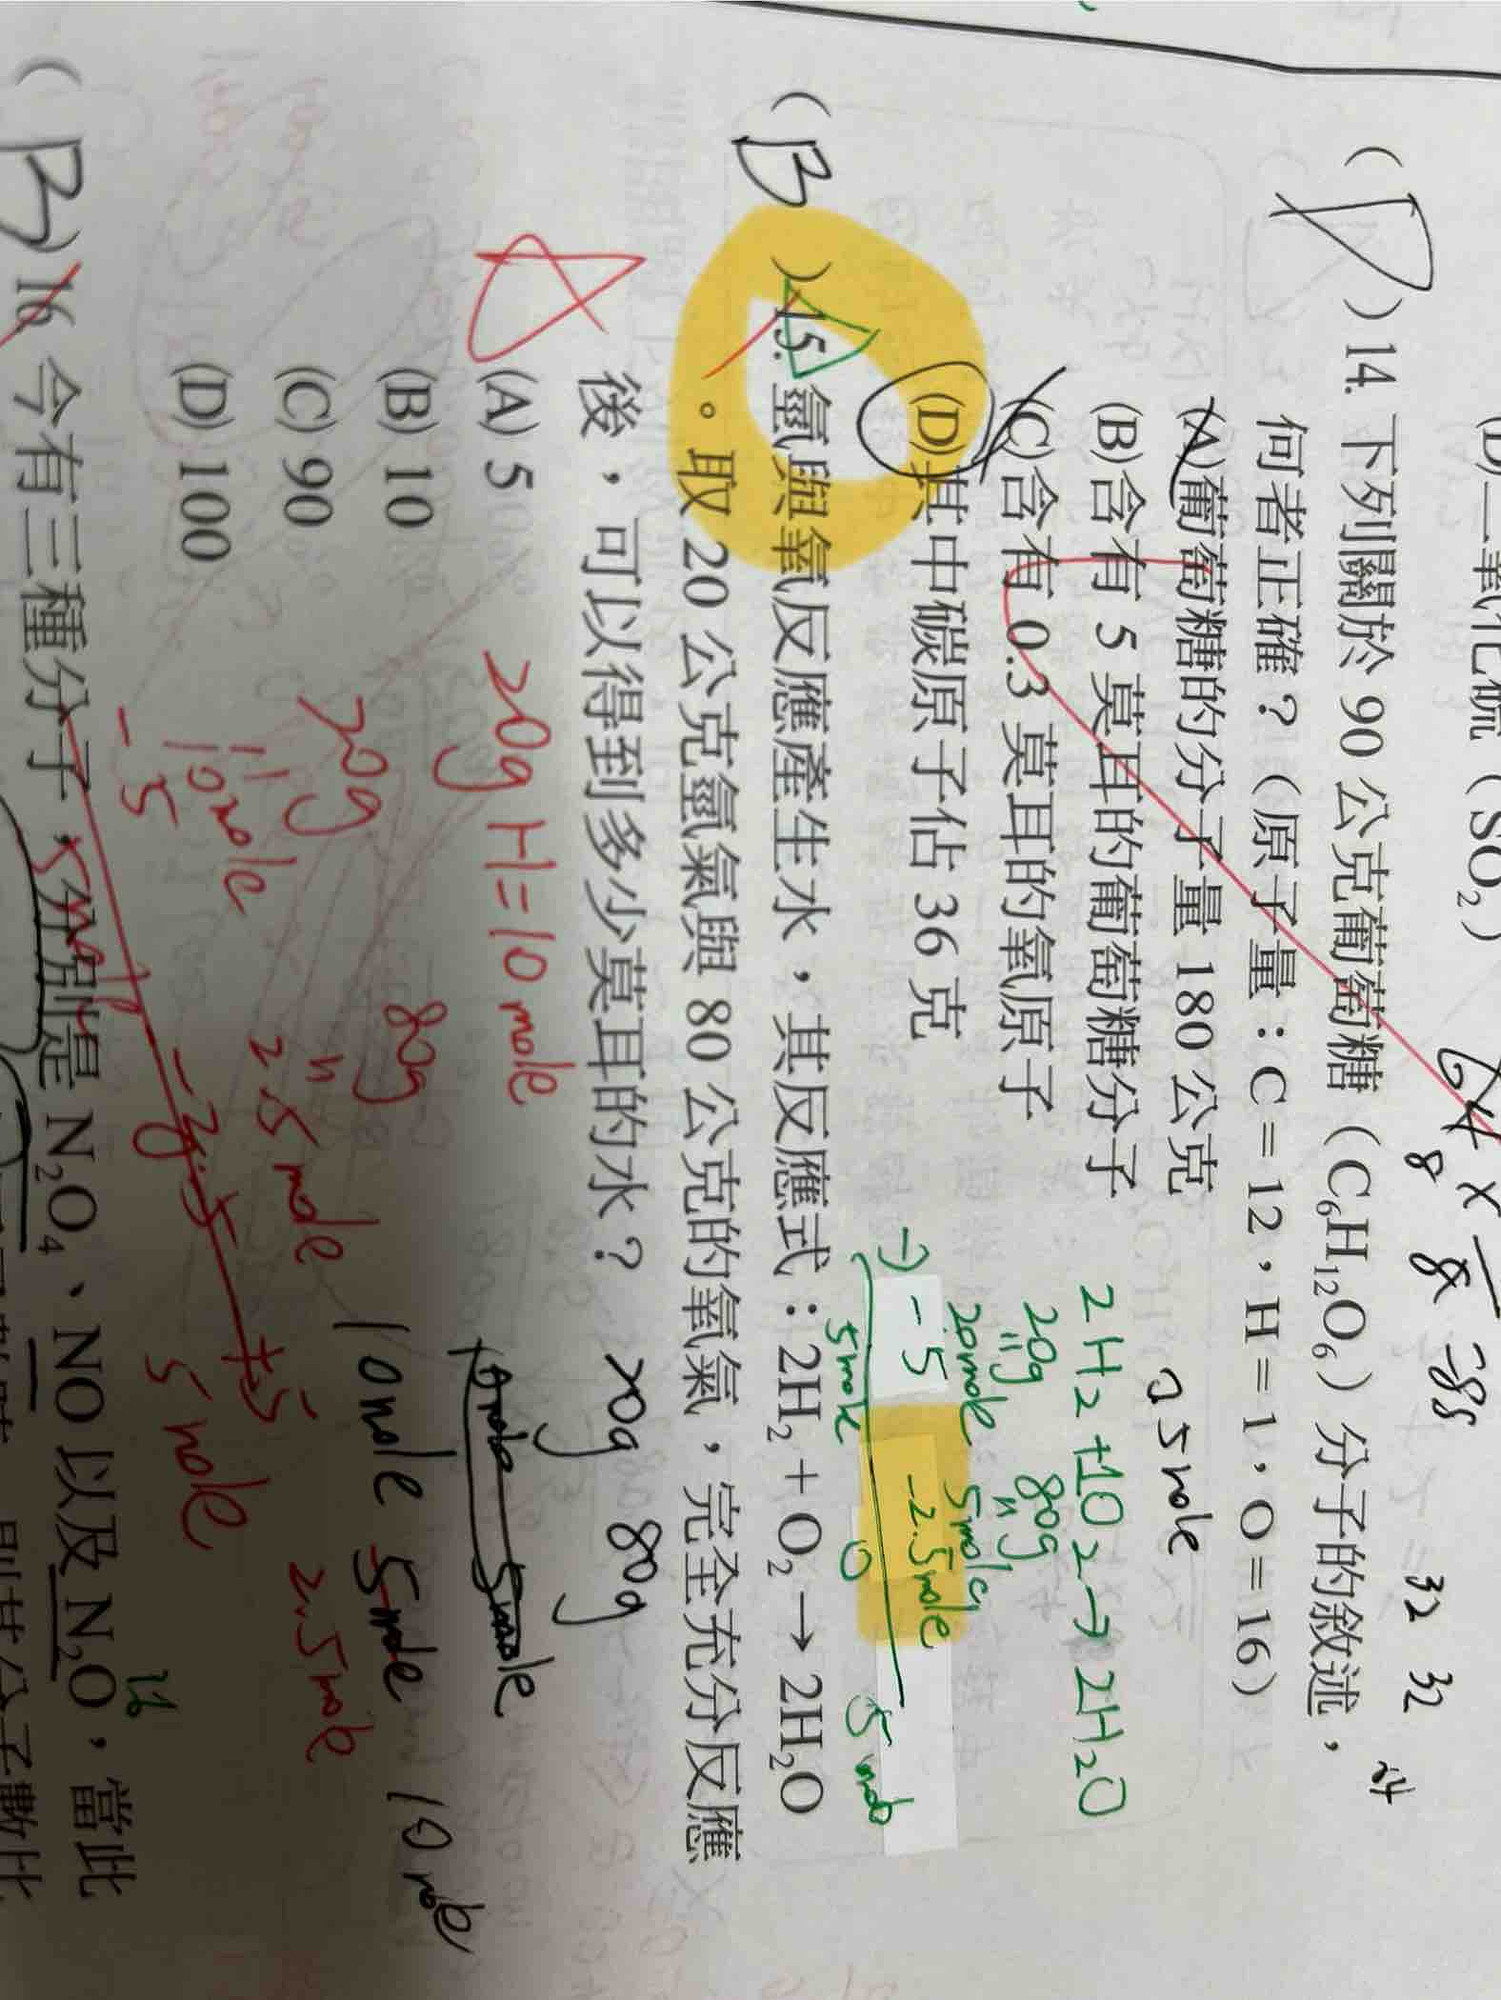 (D)二氧化硫（SO₂）
64
8
32 32
(D)14. 下列關於 90 公克葡萄糖（C₆H₁₂O₆）分子的敘述，
何者正確？（原子量：C＝12，H＝1，O＝16）
(A)葡萄糖的分子量 180 公克
(B)含有 5 莫耳的葡萄糖分子
(C)含有 0.3 莫耳的氧原子
(D)其中碳原子佔 36 克
2H₂+1O₂→2H₂O
20g 80g
20mole 5mole
-5 -2.5mole
5mole 0 5mole
(B)15. 氫與氧反應產生水，其反應式：2H₂＋O₂→2H₂O
。取 20 公克氫氣與 80 公克的氧氣，完全充分反應
後，可以得到多少莫耳的水？ 20g 80g
(A) 5
(B) 10
(C) 90
(D) 100
20g H=10mole
20g 80g
10mole 2.5mole
-5
10mole 5mole 10mole
2.5mole
5mole
(B)16 今有三種分子，分別是 N₂O₄、NO 以及 N₂O，當此